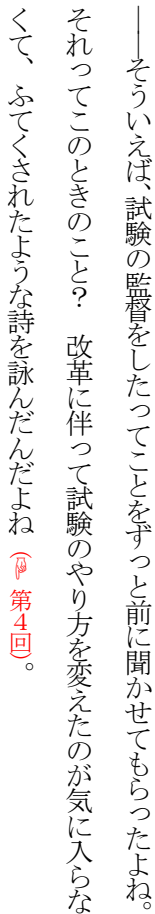 ――そういえば、試験の監督をしたってことをずっと前に聞かせてもらったよね。
それってこのときのこと？　改革に伴って試験のやり方を変えたのが気に入らな
くて、ふてくされたような詩を詠んだんだよね（☟第4回）。